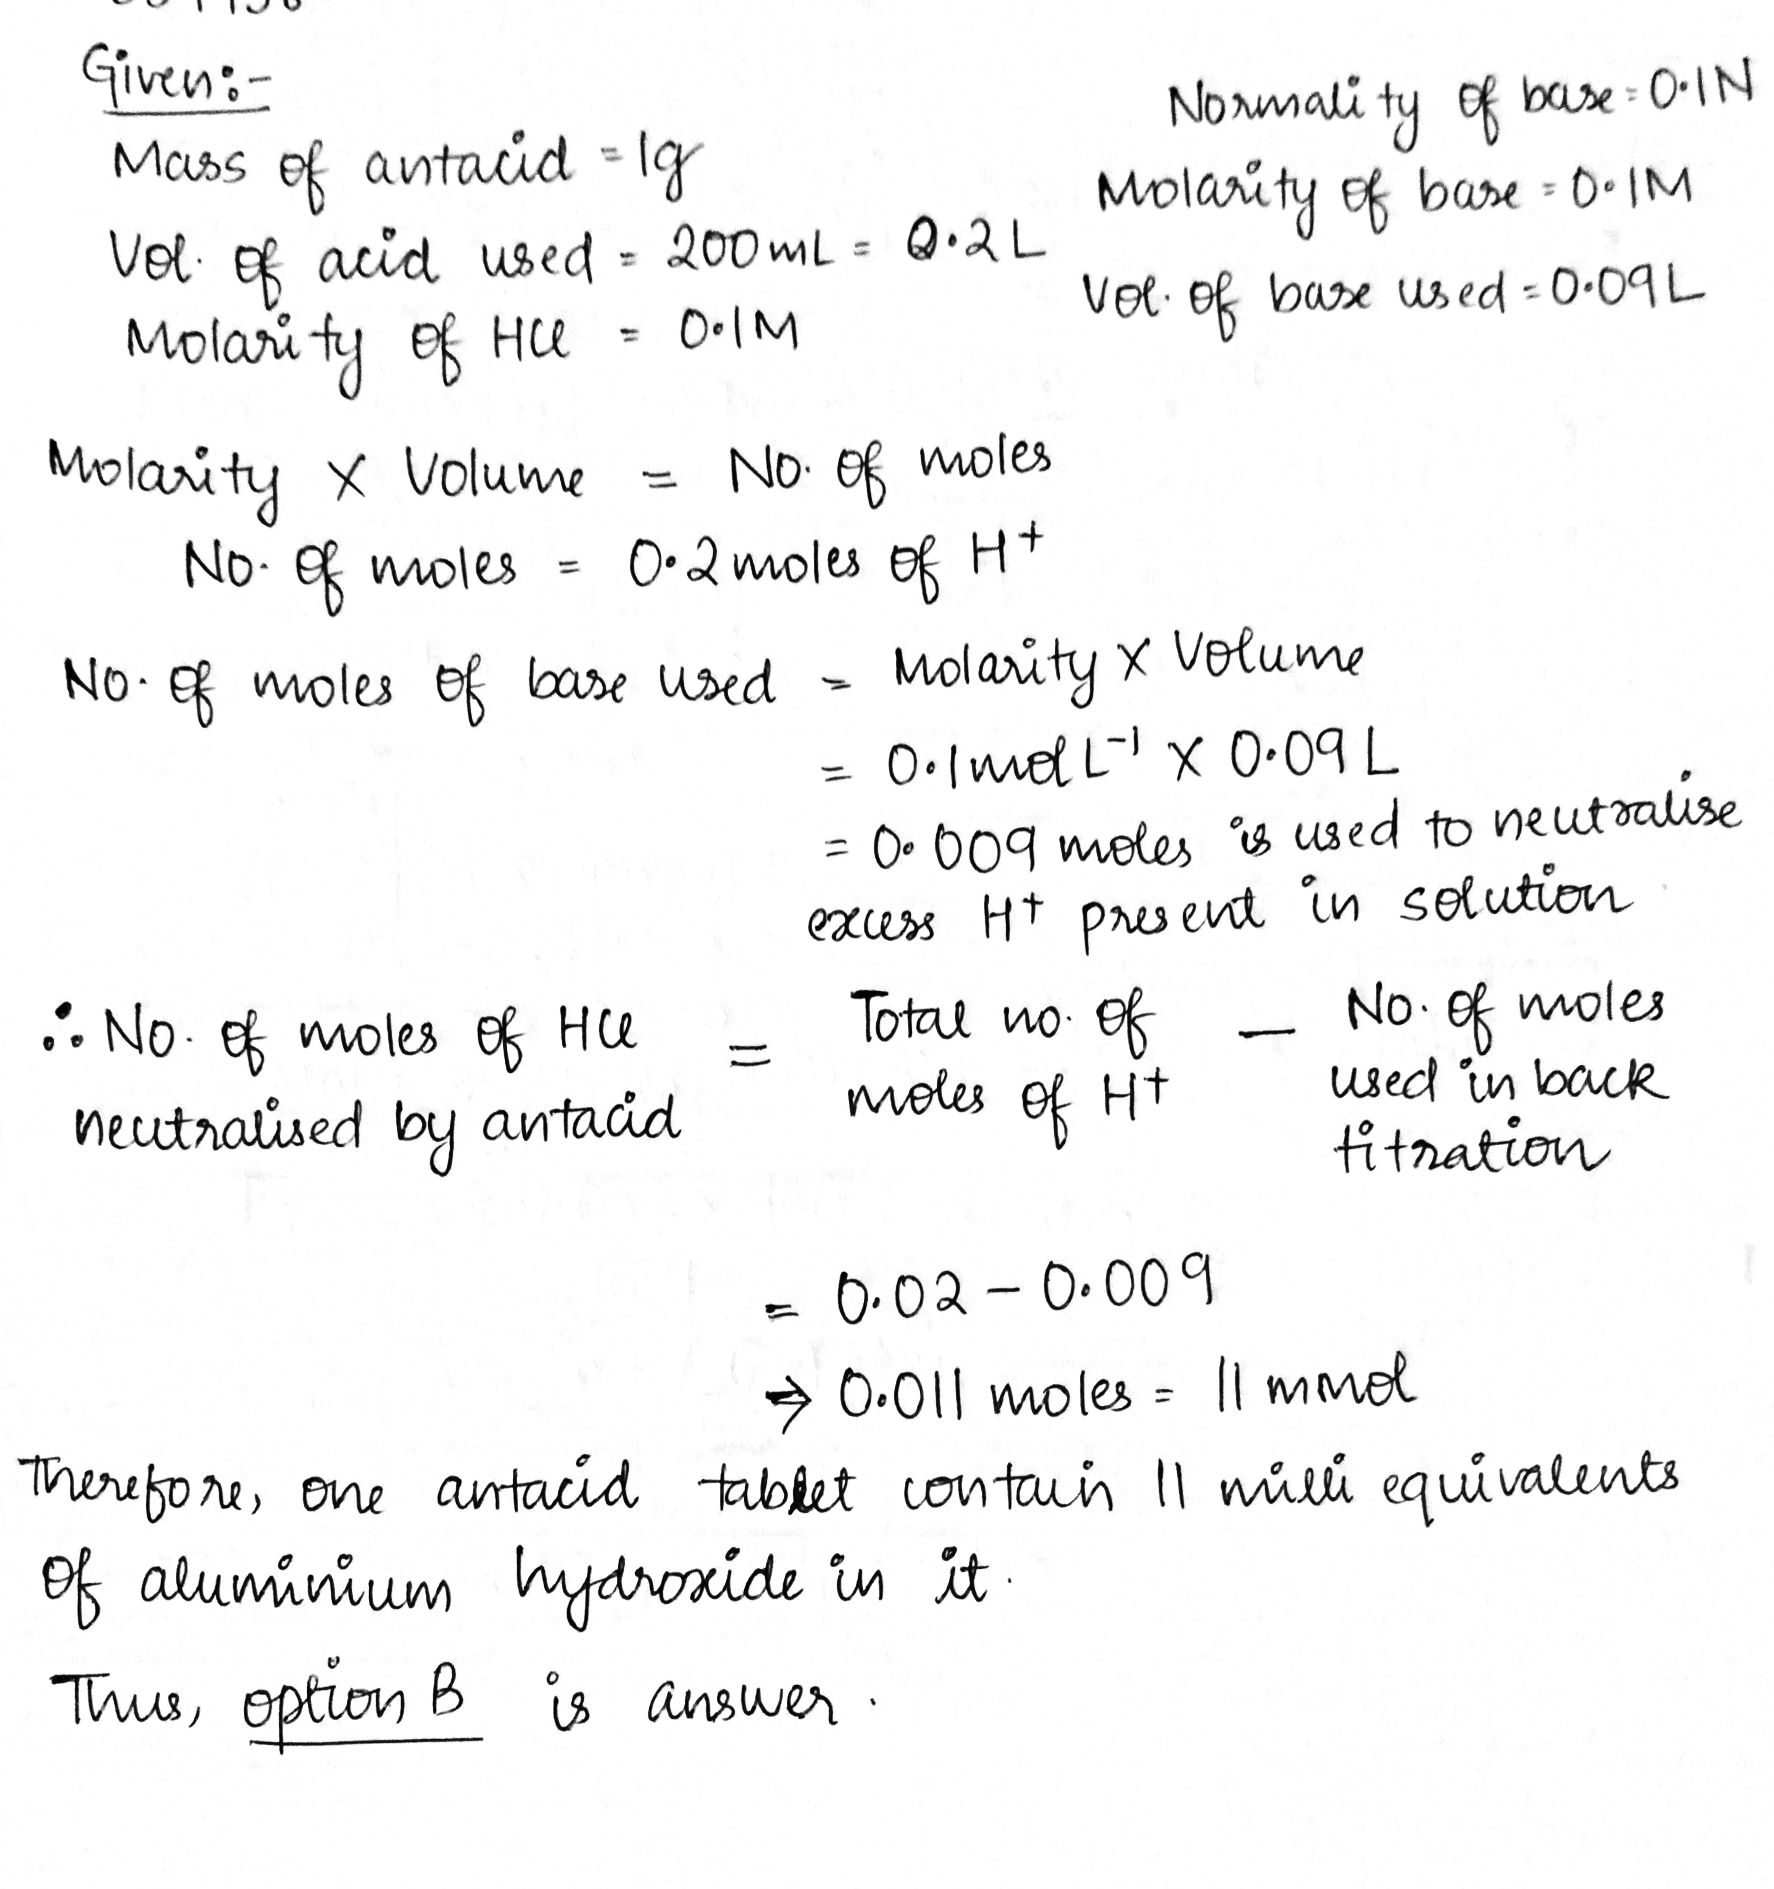 Given:-
Mass of antacid = 1g
Vol. of acid used = 200mL = 0.2L
Molarity of HCl = 0.1M
Normality of base = 0.1N
Molarity of base = 0.1M
Vol. of base used = 0.09L
Molarity X Volume = No. of moles
No. of moles = 0.2 moles of H+
No. of moles of base used = Molarity X Volume
= 0.1 mol L⁻¹ X 0.09 L
= 0.009 moles is used to neutralise
excess H+ present in solution
∴ No. of moles of HCl neutralised by antacid = Total no. of moles of H+ − No. of moles used in back titration
= 0.02 - 0.009
→ 0.011 moles = 11 mmol
Therefore, one antacid tablet contain 11 milli equivalents
of aluminium hydroxide in it.
Thus, option B is answer.